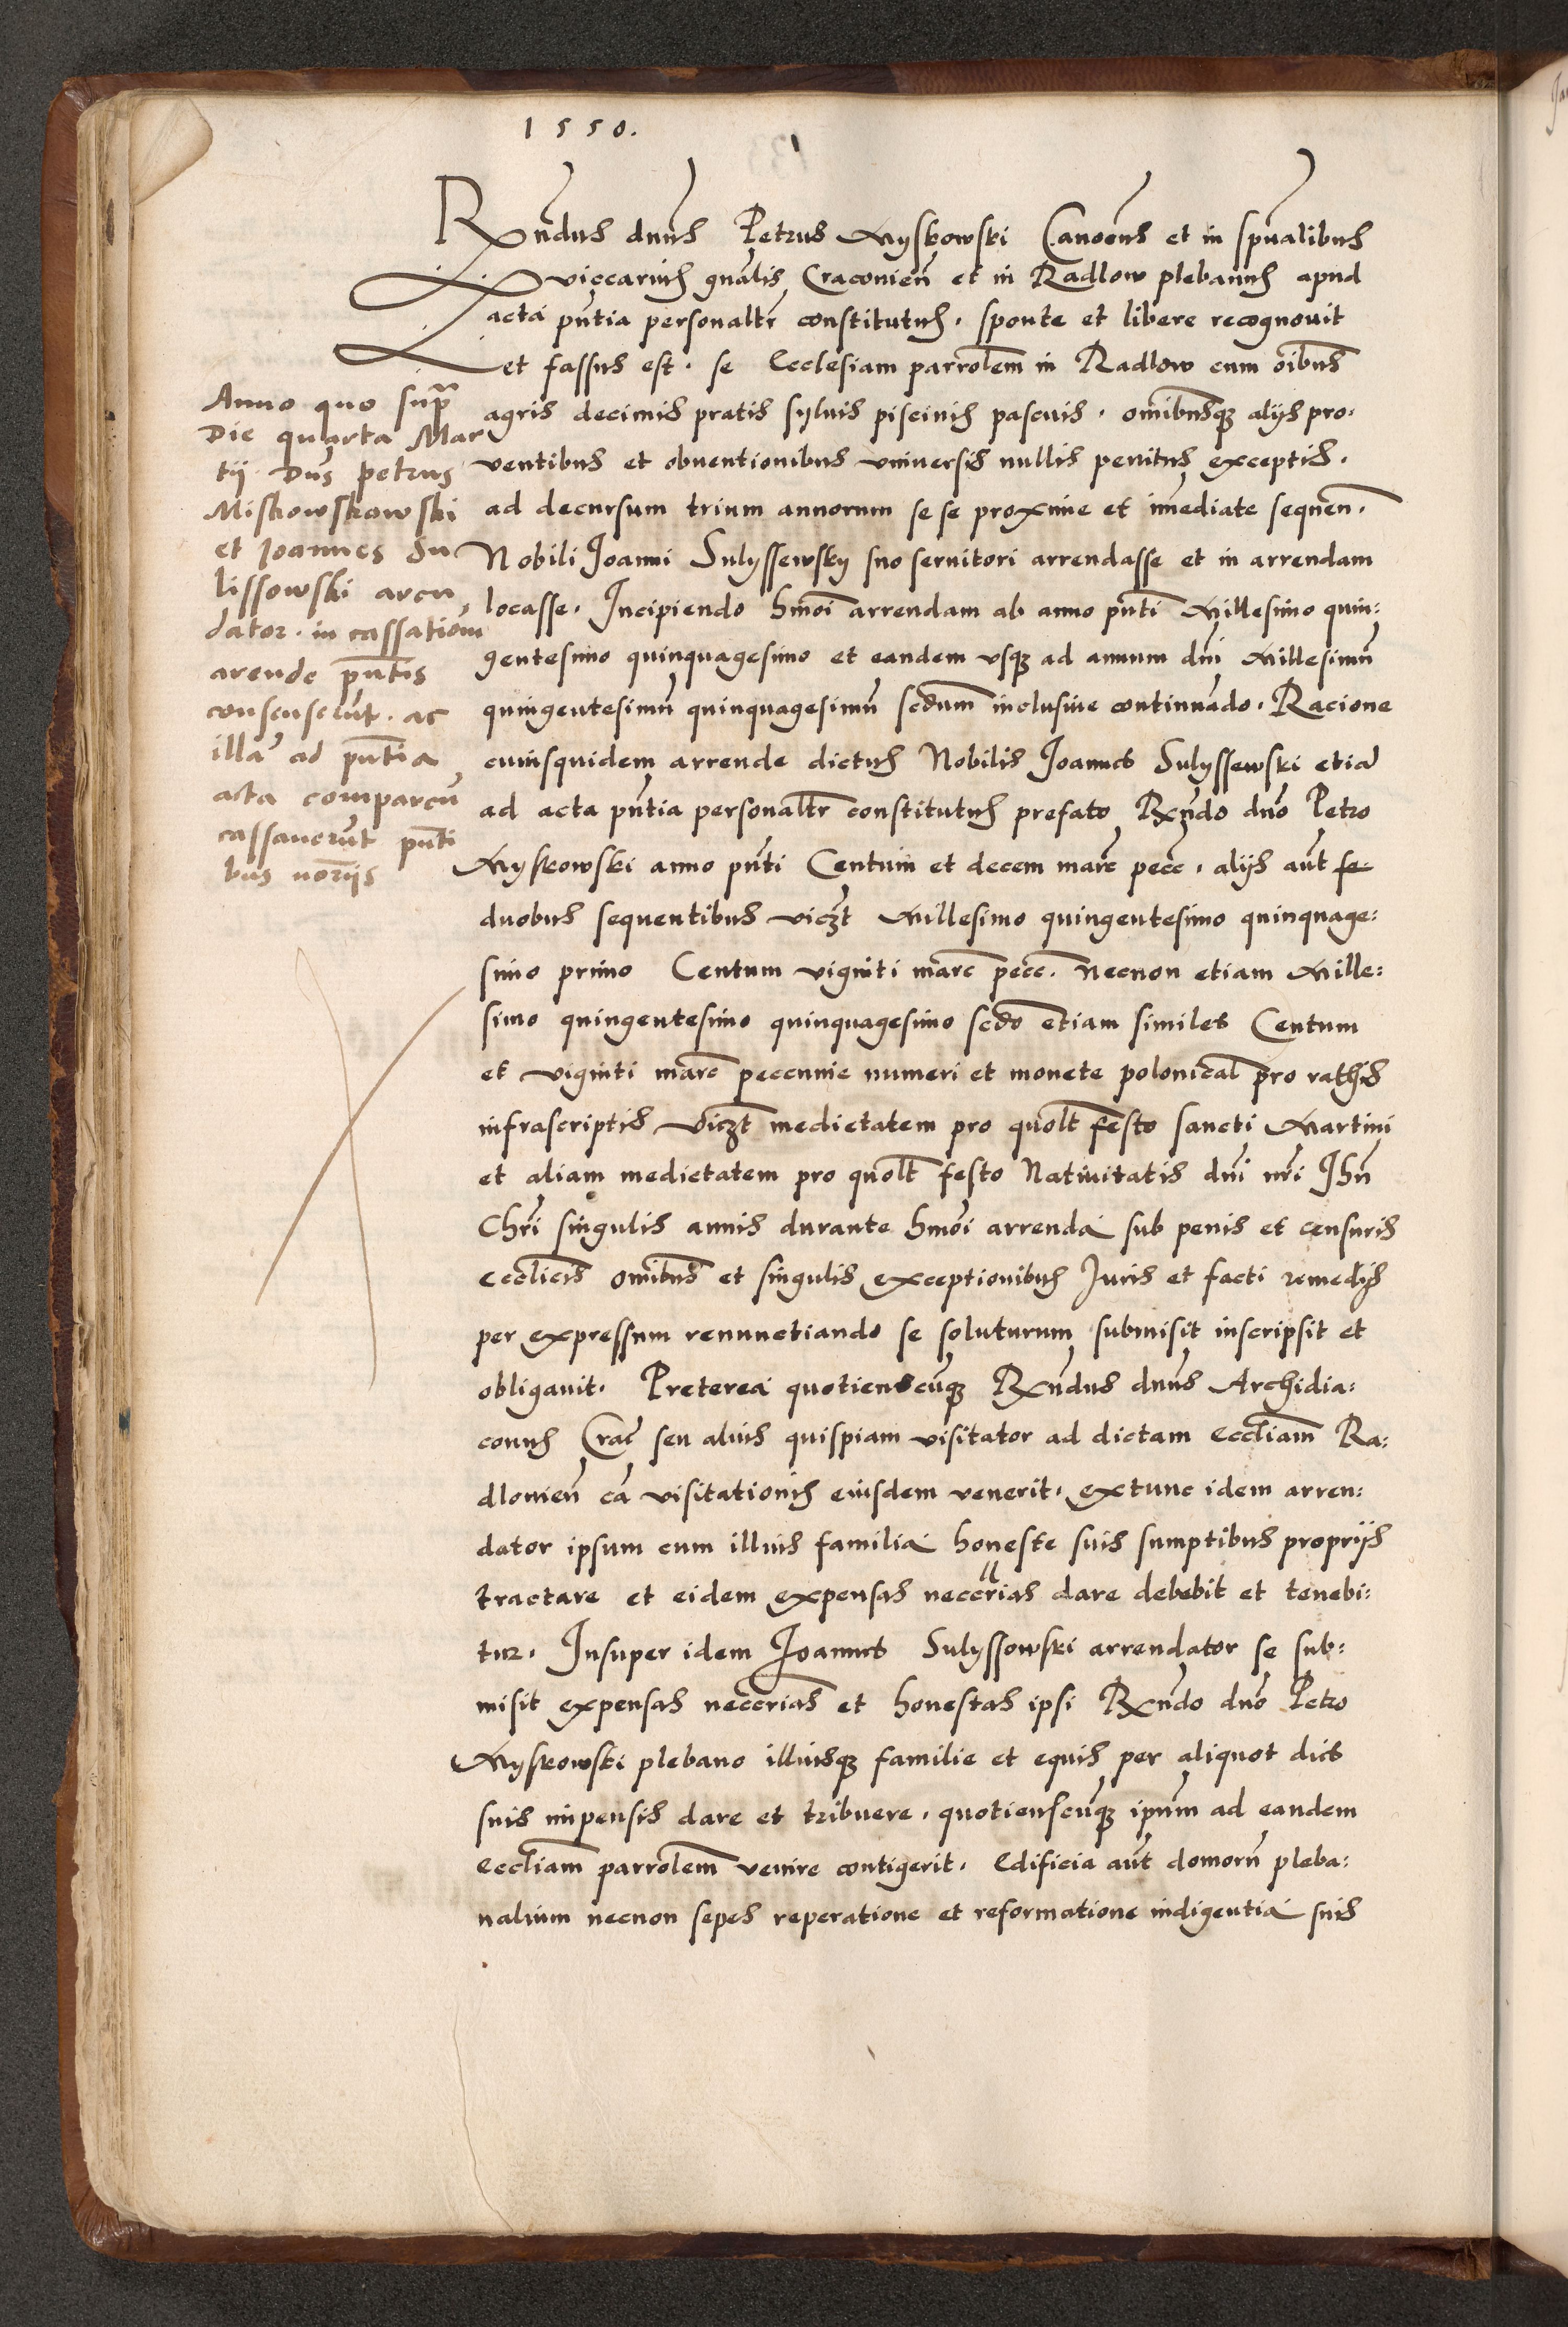 1550.
Rndus dnus Petrus Myskowski Canocus et in spualibus
viccarius gnalis Cracovien et in Radlow plebanus apud
acta pntia personalr constitutus. sponte et libere recognovit
et fassus est. se Ecclesiam parrolem in Radlow cum oibus
agris decimis pratis sylvis piscinis pascuis. omibusq alijs pro:
ventibus et obventionibus universis nullis penitus exceptis.
ad decursum trium annorum se se proxime et imediate sequen.
Nobili Joanni Sulyssewsky suo servitori arrendasse et in arrendam
locasse. Incipiendo hmoi arrendam ab anno pnti Millesimo quin:
gentesimo quinquagesimo et eandem usq ad annum dni Millesimu
quingentesimu quinquagesimu scdum inclusive continuado. Racione
cuiusquidem arrende dictus Nobilis Joannes Sulyssewski etia
ad acta pntia personalr constitutus prefato Rndo dno Petro
Myskowski anno pnti Centum et decem marc pecc. alijs aut se
duobus sequentibus viczt Millesimo quingentesimo quinquage:
simo primo Centum viginti marc pecc. Necnon etiam Mille:
simo quingentesimo quinquagesimo scdo etiam similes Centum
et viginti marc peccunie numeri et monete polonical pro rathis
infrascriptis viczt medietatem pro quolt festo sancti Martini
et aliam medietatem pro quolt festo Nativitatis dni nri Jhu
Chri singulis annis durante hmoi arrenda sub penis et censuris
ecclicis omibus et singulis exceptionibus Juris et facti remedijs
per expressum renunctiando se soluturum submisit inscripsit et
obligavit. Preterea quotienscuq Rndus dnus Archidia:
conus Crac seu alius quispiam visitator ad dictam eccliam Ra:
dlovien ca visitationis eiusdem venerit. extunc idem arren:
dator ipsum cum illius familia honeste suis sumptibus proprijs
tractare et eidem expensas neccrias dare debebit et tenebi:
tur. Insuper idem Joannes Sulyssowski arrendator se sub:
misit expensas neccrias et honestas ipsi Rndo dno Petro
Myskowski plebano illiusq familie et equis per aliquot dies
suis impensis dare et tribuere. quotienscuq ipum ad eandem
eccliam parrolem venire contigerit. Edificia aut domoru pleba:
nalium necnon sepes reperatione et reformatione indigentia suis
Anno quo supra
Die quarta Mar
tij Dns petrus
Miskowskowski
et Joannes Su
lissowski aren
dator. in cassationem
arende pntis
consenserut. ac
illa ad pntia
acta comparen
cassaverut pnti
bus noriis